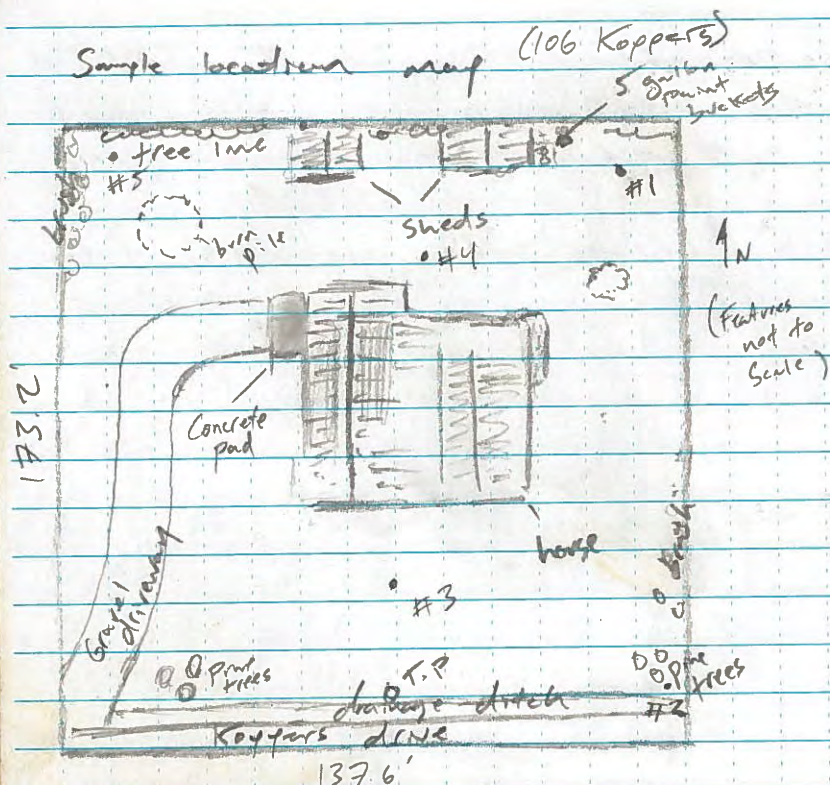 Sample location map (106 Koppers)
5 gallon
paint
buckets
tree line
#5
#1
brush
burn
pile
sheds
#4
N
(Features
not to
Scale)
173.2'
Concrete
pad
house
brush
Gravel
driveway
#3
pine
trees
T.P
pine
trees
#2
drainage ditch
Koppers drive
137.6'